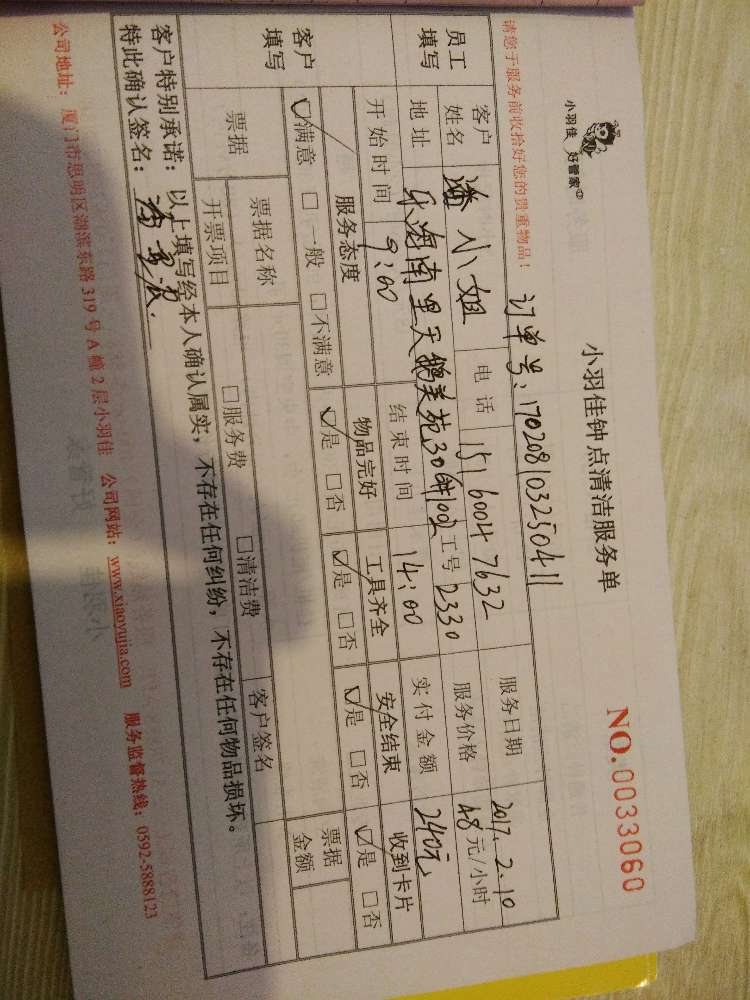 小羽佳 好管家
小羽佳钟点清洁服务单
NO.0033060
请您于服务前收拾好您的贵重物品!
订单号:17020810325041１
员工填写
客户姓名 潘小姐 电话 15160047632 服务日期 2017.2.10
地址 乐海南里天鹅美苑306#1002 工号 2330 服务价格 48元/小时
开始时间 9:00 结束时间 14:00 实付金额 240元
客户填写
服务态度 物品完好 工具齐全 安全结束 收到卡片
☑满意 □一般 □不满意 ☑是 □否 ☑是 □否 ☑是 □否 ☑是 □否
票据 票据名称 客户签名 票据金额
开票项目 □服务费 □清洁费
客户特别承诺:以上填写经本人确认属实,不存在任何纠纷,不存在任何物品损坏。
特此确认签名:
公司地址:厦门市思明区湖滨东路319号A幢2层小羽佳 公司网站:www.xiaoyujia.com 服务监督热线:0592-5888123